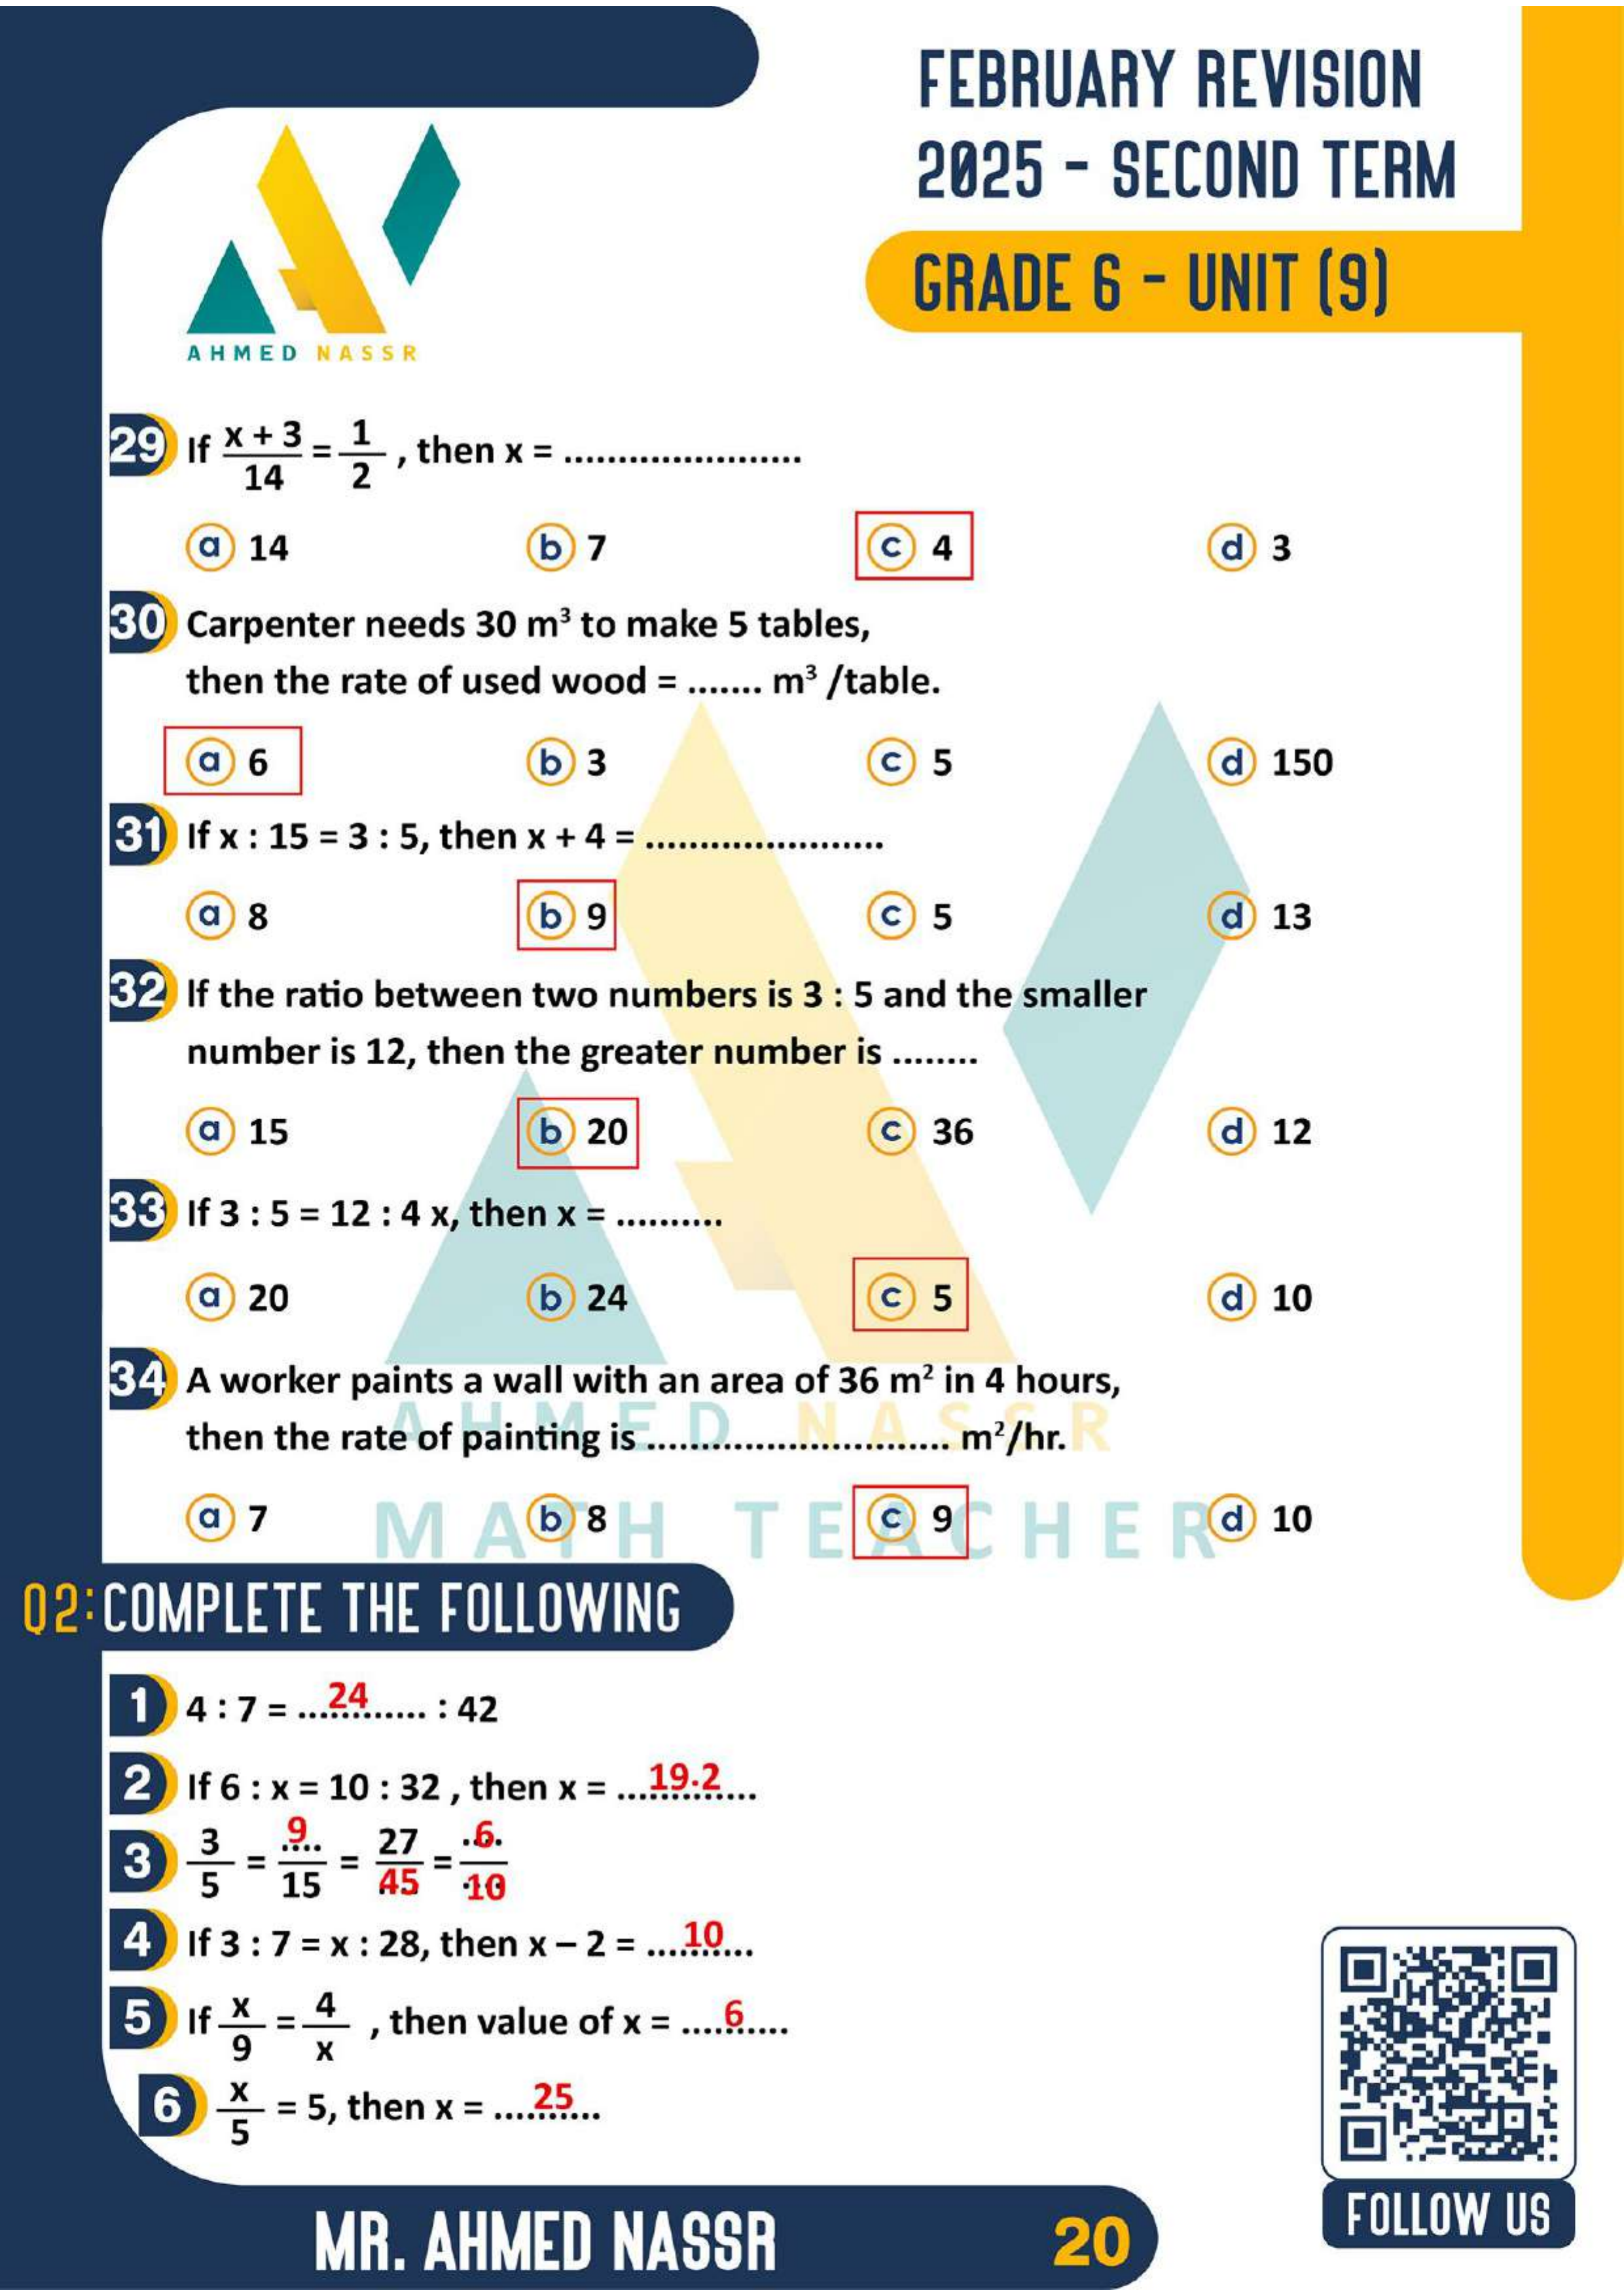 FEBRUARY REVISION
2025 - SECOND TERM
GRADE 6 - UNIT (9)
AHMED NASSR
29 If x + 3 / 14 = 1 / 2 , then x = ......................
a 14 b 7 c 4 d 3
30 Carpenter needs 30 m³ to make 5 tables,
then the rate of used wood = ....... m³ /table.
a 6 b 3 c 5 d 150
31 If x : 15 = 3 : 5, then x + 4 = ......................
a 8 b 9 c 5 d 13
32 If the ratio between two numbers is 3 : 5 and the smaller
number is 12, then the greater number is ........
a 15 b 20 c 36 d 12
33 If 3 : 5 = 12 : 4 x, then x = ..........
a 20 b 24 c 5 d 10
34 A worker paints a wall with an area of 36 m² in 4 hours,
then the rate of painting is ............................ m²/hr.
AHMED NASSR
a 7 b 8 c 9 d 10
MATH TEACHER
Q2: COMPLETE THE FOLLOWING
1 4 : 7 = ...24...... : 42
2 If 6 : x = 10 : 32 , then x = ...19.2...
3 3/5 = 9/15 = 27/45 = 6/10
4 If 3 : 7 = x : 28, then x – 2 = ...10...
5 If x/9 = 4/x , then value of x = ....6....
6 x/5 = 5, then x = ....25...
MR. AHMED NASSR
20
FOLLOW US